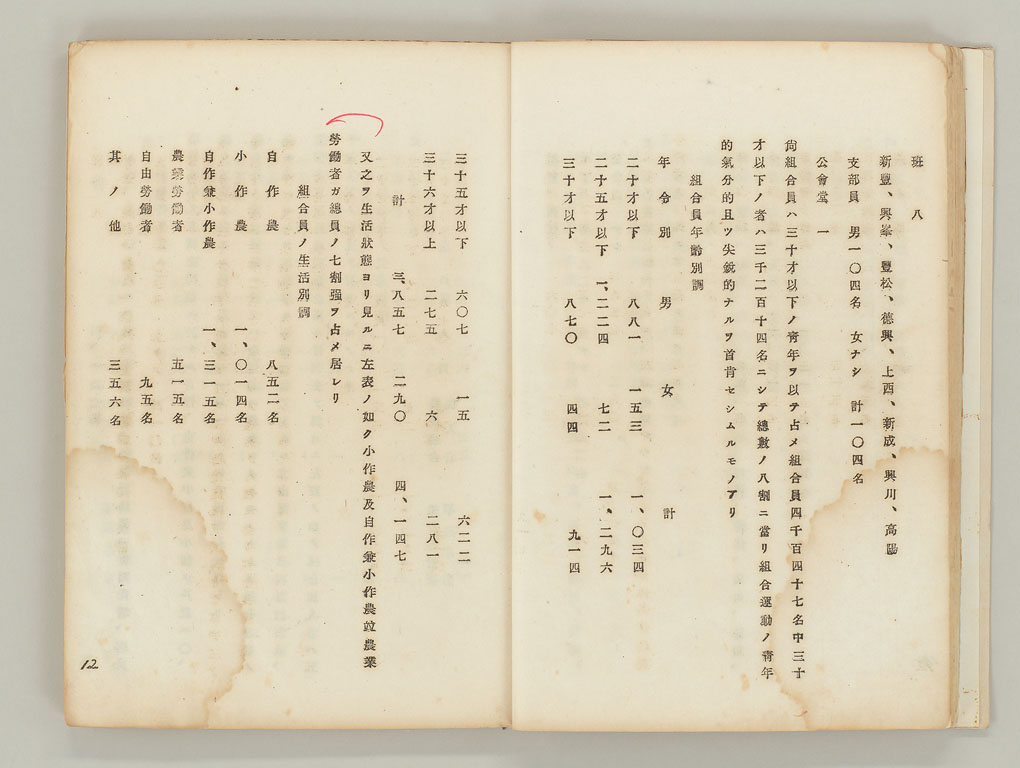 班 八
新豐、興峯、豐松、德興、上西、新成、興川、高陽
支部員 男一〇四名 女ナシ 計一〇四名
公會堂 一
尙組合員ハ三十才以下ノ靑年ヲ以テ占メ組合員四千百四十七名中三十
才以下ノ者ハ三千二百十四名ニシテ總數ノ八割ニ當リ組合運動ノ靑年
的氣分的且ツ尖銳的ナルヲ首肯セシムルモノアリ
組合員年齡別調
年令別 男 女 計
二十才以下 八八一 一五三 一、〇三四
二十五才以下 一、二二四 七二 一、二九六
三十才以下 八七〇 四四 九一四
三十五才以下 六〇七 一五 六二二
三十六才以上 二七五 六 二八一
計 三、八五七 二九〇 四、一四七
又之ヲ生活狀態ヨリ見ルニ左表ノ如ク小作農及自作兼小作農竝農業
勞働者ガ總員ノ七割强ヲ占メ居レリ
組合員ノ生活別調
自作農 八五二名
小作農 一、〇一四名
自作兼小作農 一、三一五名
農業勞働者 五一五名
自由勞働者 九五名
其ノ他 三五六名
12